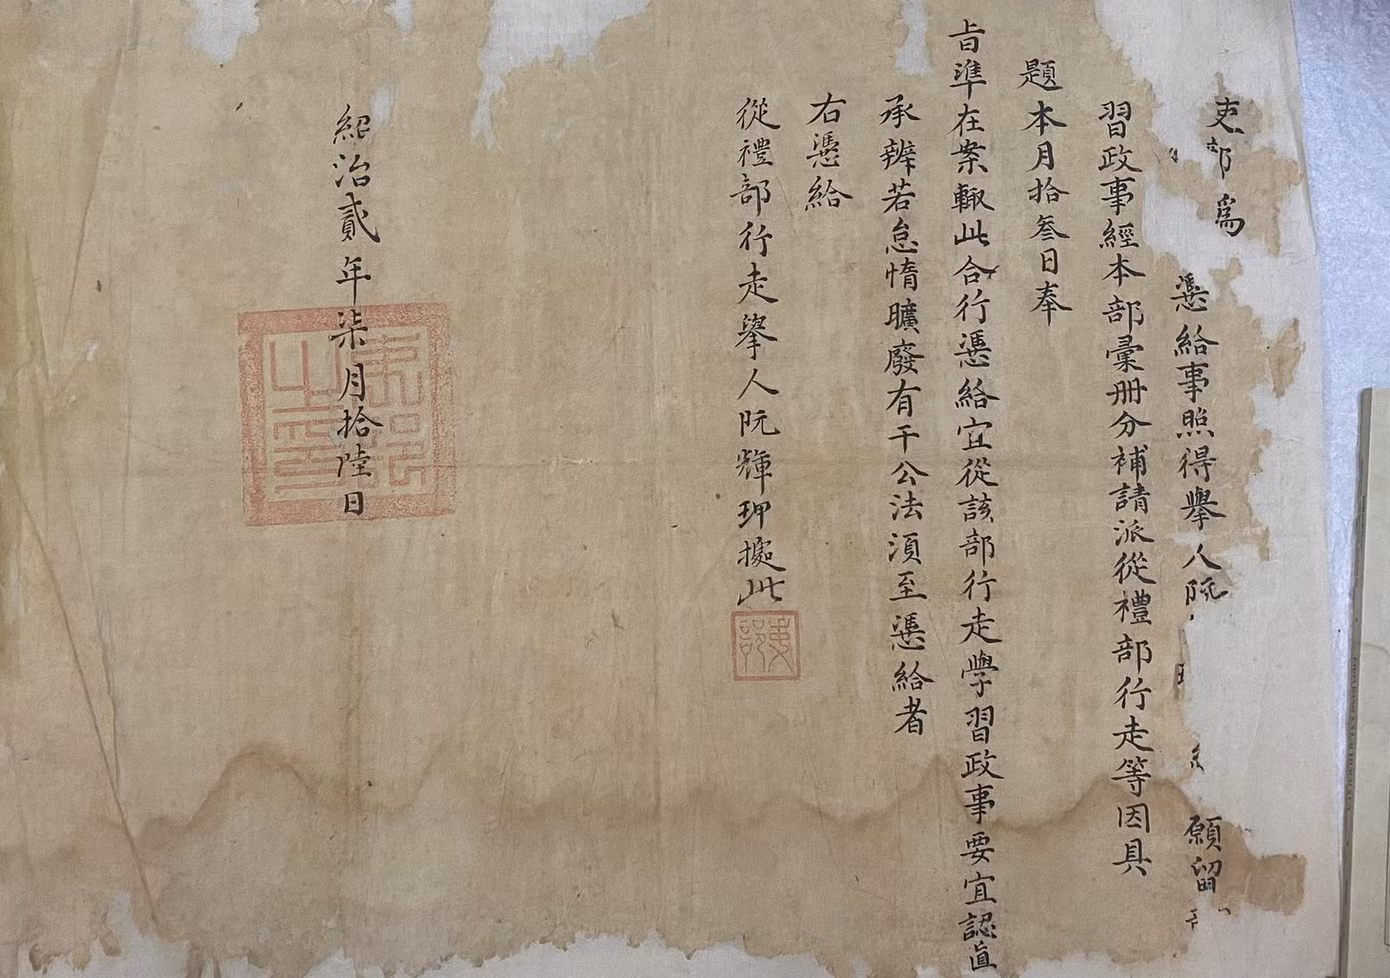 吏部為
憑給事照得舉人阮 願留
習政事經本部彙冊分補請派從禮部行走等因具
題本月拾叄日奉
旨準在案輙此合行憑給宜從該部行走學習政事要宜認眞
承辦若怠惰曠廢有干公法湏至憑給者
右憑給
從禮部行走舉人阮輝玾據此
吏部
紹治貳年柒月拾陸日
吏部之印